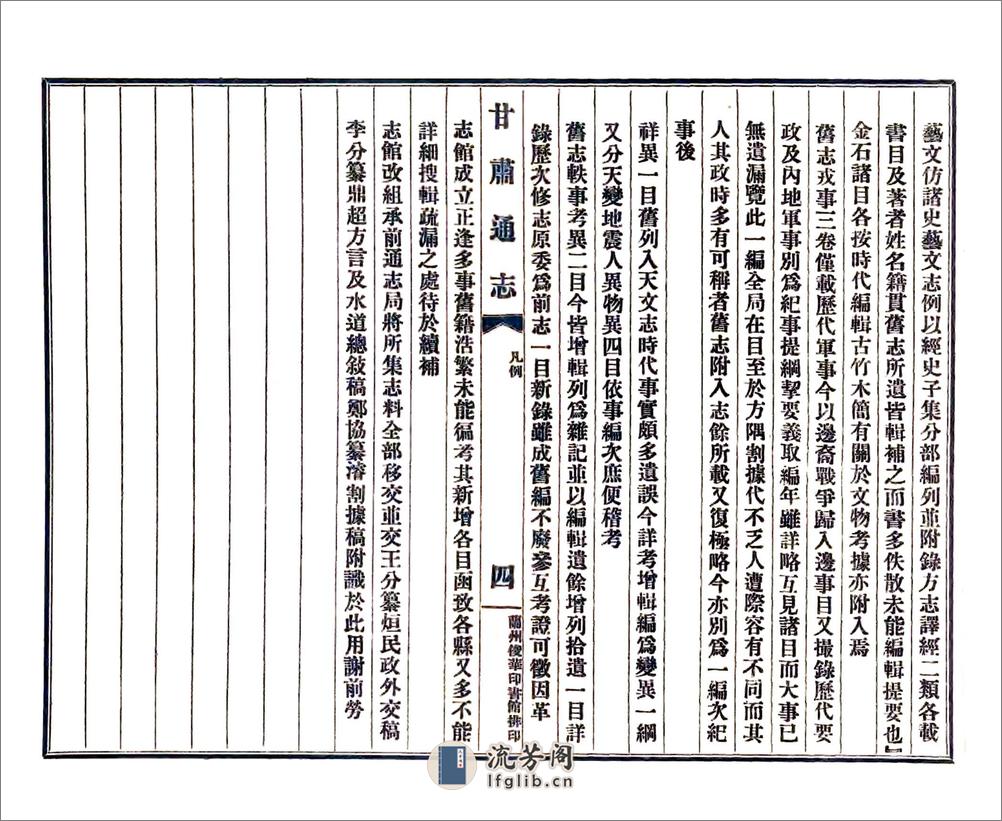 藝文仿諸史藝文志例以經史子集分部編列並附錄方志譯經二類各載
書目及著者姓名籍貫舊志所遺皆輯補之而書多佚散未能編輯提要也
金石諸目各按時代編輯古竹木簡有關於文物考據亦附入焉
舊志戎事三卷僅載歷代軍事今以邊裔戰爭歸入邊事目又撮錄歷代要
政及內地軍事別爲紀事提綱挈要義取編年雖詳略互見諸目而大事已
無遺漏覽此一編全局在目至於方隅割據代不乏人遭際容有不同而其
人其政時多有可稱者舊志附入志餘所載又復極略今亦別爲一編次紀
事後
祥異一目舊列入天文志時代事實頗多遺誤今詳考增輯編爲變異一綱
又分天變地震人異物異四目依事編次庶便稽考
舊志軼事考異二目今皆增輯列爲雜記並以編輯遺餘增列拾遺一目詳
錄歷次修志原委爲前志一目新錄雖成舊編不廢參互考證可徵因革
甘肅通志
凡例
四
蘭州俊華印書館排印
志館成立正逢多事舊籍浩繁未能徧考其新增各目函致各縣又多不能
詳細搜輯疏漏之處待於續補
志館改組承前通志局將所集志料全部移交並交王分纂烜民政外交稿
李分纂鼎超方言及水道總敍稿鄭協纂濬割據稿附識於此用謝前勞
流芳阁
lfglib.cn